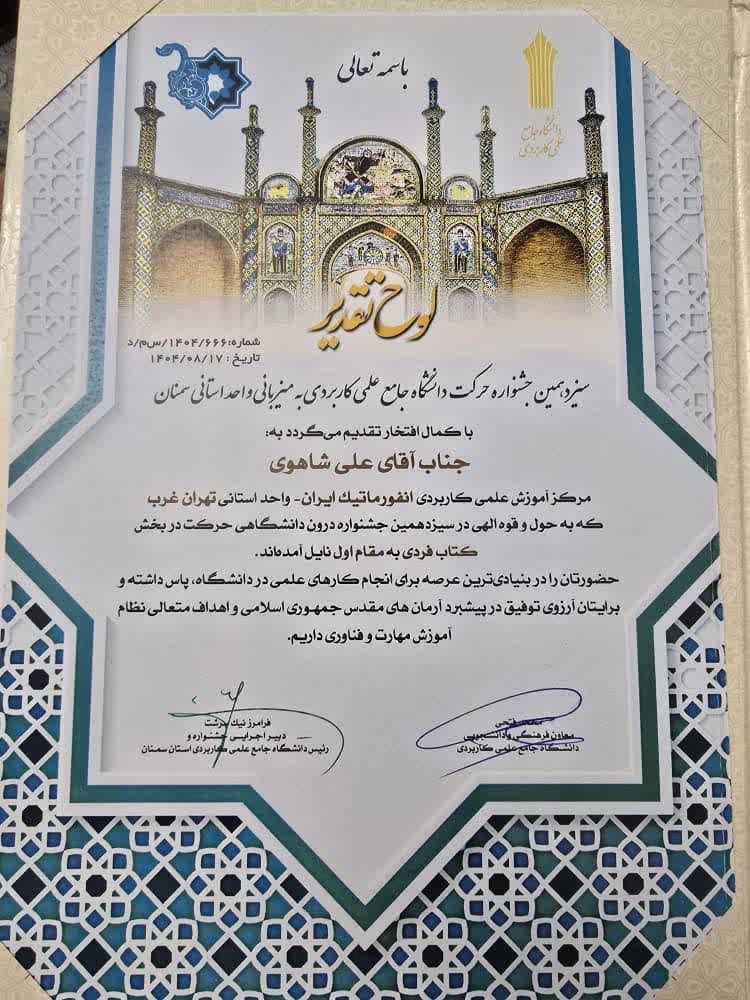 باسمه تعالی
دانشگاه جامع
علمی کاربردی
لوح تقدیر
شماره:۱۴۰۴/۶۶۶/س‌م/د
تاریخ : ۱۴۰۴/۰۸/۱۷
سیزدهمین جشنواره حرکت دانشگاه جامع علمی کاربردی به میزبانی واحد استانی سمنان
با کمال افتخار تقدیم می‌گردد به:
جناب آقای علی شاهوی
مرکز آموزش علمی کاربردی انفورماتیک ایران- واحد استانی تهران غرب
که به حول و قوه الهی در سیزدهمین جشنواره درون دانشگاهی حرکت در بخش
کتاب فردی به مقام اول نایل آمده‌اند.
حضورتان را در بنیادی‌ترین عرصه برای انجام کارهای علمی در دانشگاه، پاس داشته و
برایتان آرزوی توفیق در پیشبرد آرمان های مقدس جمهوری اسلامی و اهداف متعالی نظام
آموزش مهارت و فناوری داریم.
فتحی
معاون فرهنگی و دانشجویی
دانشگاه جامع علمی کاربردی
فرامرز نیک سرشت
دبیر اجرایی جشنواره و
رئیس دانشگاه جامع علمی کاربردی استان سمنان